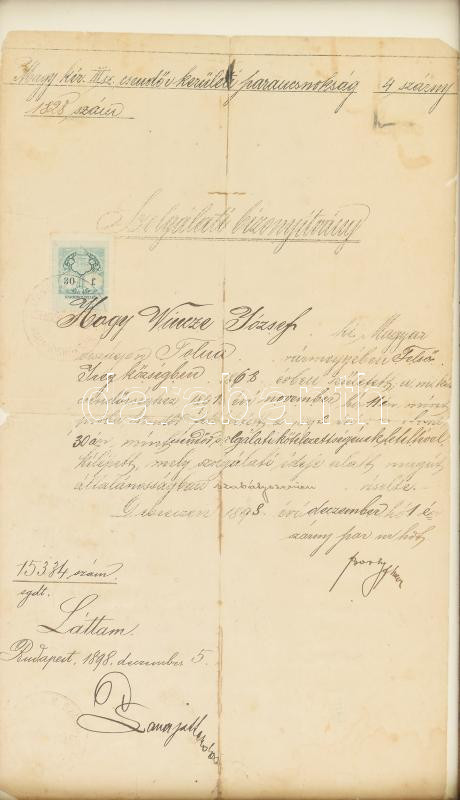 Magy. kir. III sz. csendőr kerületi parancsnokság 4 szárny
1328 szám
Szolgálati bizonyítvány
30 f
Nagy Vincze József ki Magyar
országon Tolna vármegyében Felső
Ireg községben 868 évben született, a m. kir.
csendőrséghez 1891 évi november hó 11én mint
próba csendőr
30án, mint csendőr szolgálati kötelezettségének eleget téve
kilépett, mely szolgálati ideje alatt magát
általánosságban szabályszerűen viselte.
Debreczen 1898. évi deczember hó 1 én
szárny par m hdt
15334 szám.
sgdt.
Láttam.
Budapest, 1898. deczember 5.